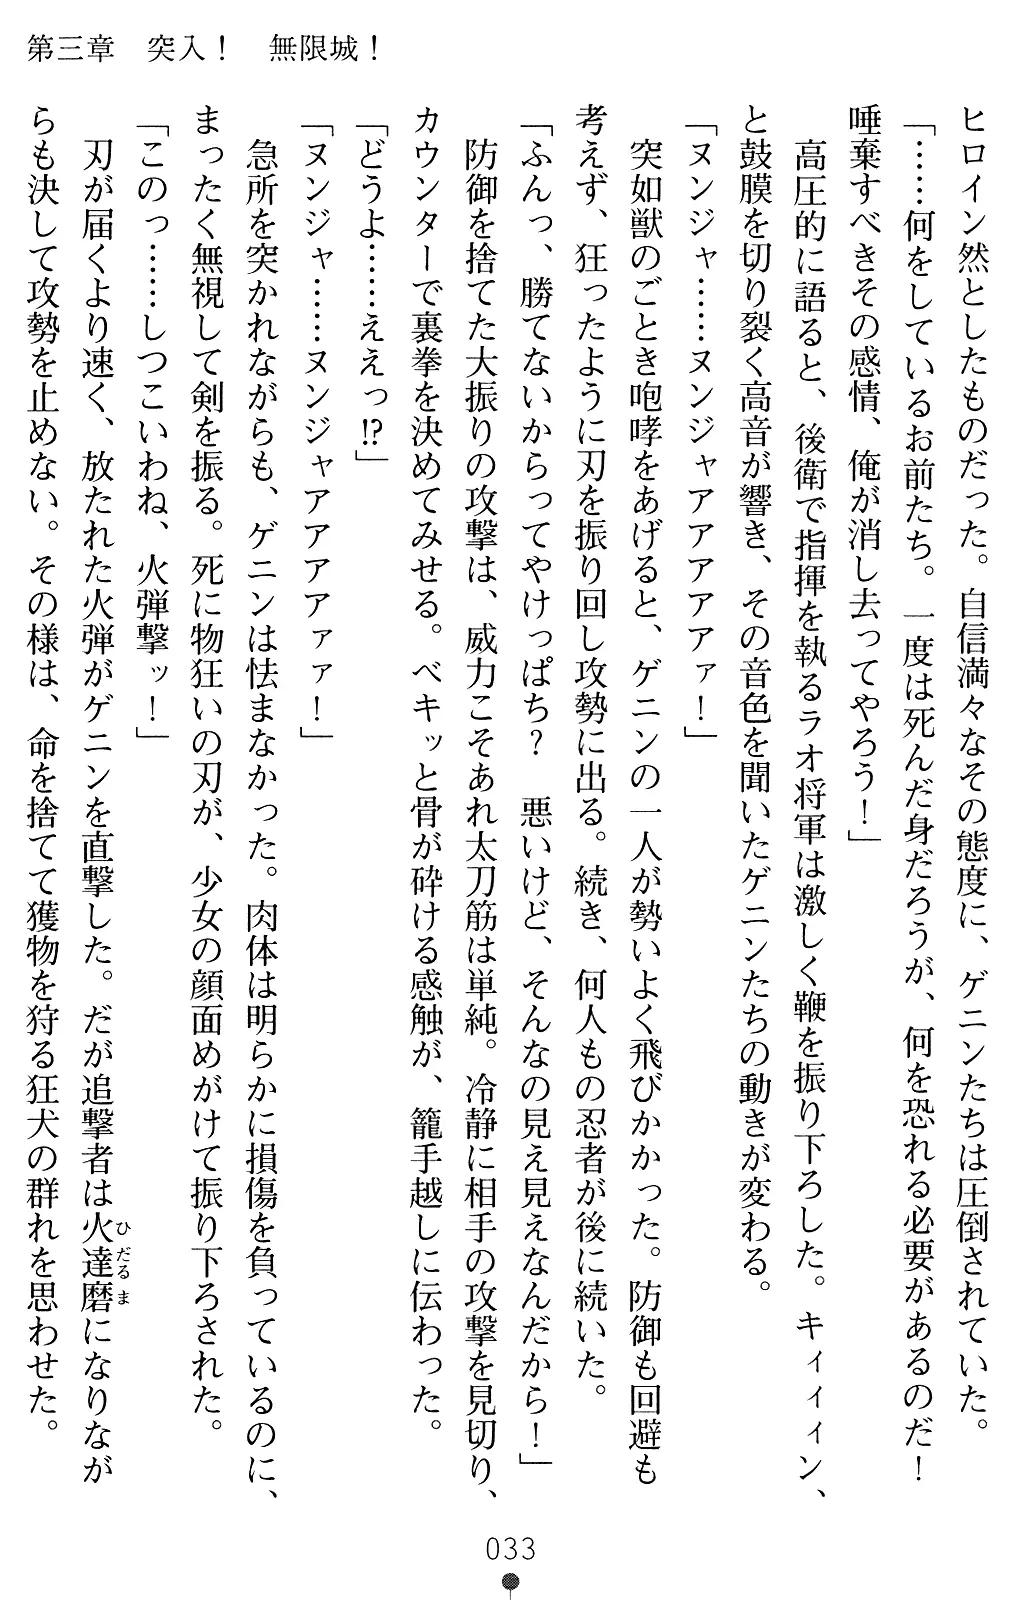 第三章　突入！　無限城！
ヒロイン然としたものだった。自信満々なその態度に、ゲニンたちは圧倒されていた。
「……何をしているお前たち。一度は死んだ身だろうが、何を恐れる必要があるのだ！
唾棄すべきその感情、俺が消し去ってやろう！」
　高圧的に語ると、後衛で指揮を執るラオ将軍は激しく鞭を振り下ろした。キィィィン、
と鼓膜を切り裂く高音が響き、その音色を聞いたゲニンたちの動きが変わる。
「ヌンジャ……ヌンジャアアアアァ！」
　突如獣のごとき咆哮をあげると、ゲニンの一人が勢いよく飛びかかった。防御も回避も
考えず、狂ったように刃を振り回し攻勢に出る。続き、何人もの忍者が後に続いた。
「ふんっ、勝てないからってやけっぱち？　悪いけど、そんなの見え見えなんだから！」
　防御を捨てた大振りの攻撃は、威力こそあれ太刀筋は単純。冷静に相手の攻撃を見切り、
カウンターで裏拳を決めてみせる。ベキッと骨が砕ける感触が、籠手越しに伝わった。
「どうよ……ええっ!?」
「ヌンジャ……ヌンジャアアアアァァ！」
　急所を突かれながらも、ゲニンは怯まなかった。肉体は明らかに損傷を負っているのに、
まったく無視して剣を振る。死に物狂いの刃が、少女の顔面めがけて振り下ろされた。
「このっ……しつこいわね、火弾撃ッ！」
　刃が届くより速く、放たれた火弾がゲニンを直撃した。だが追撃者は火達磨になりなが
ひだるま
らも決して攻勢を止めない。その様は、命を捨てて獲物を狩る狂犬の群れを思わせた。
033